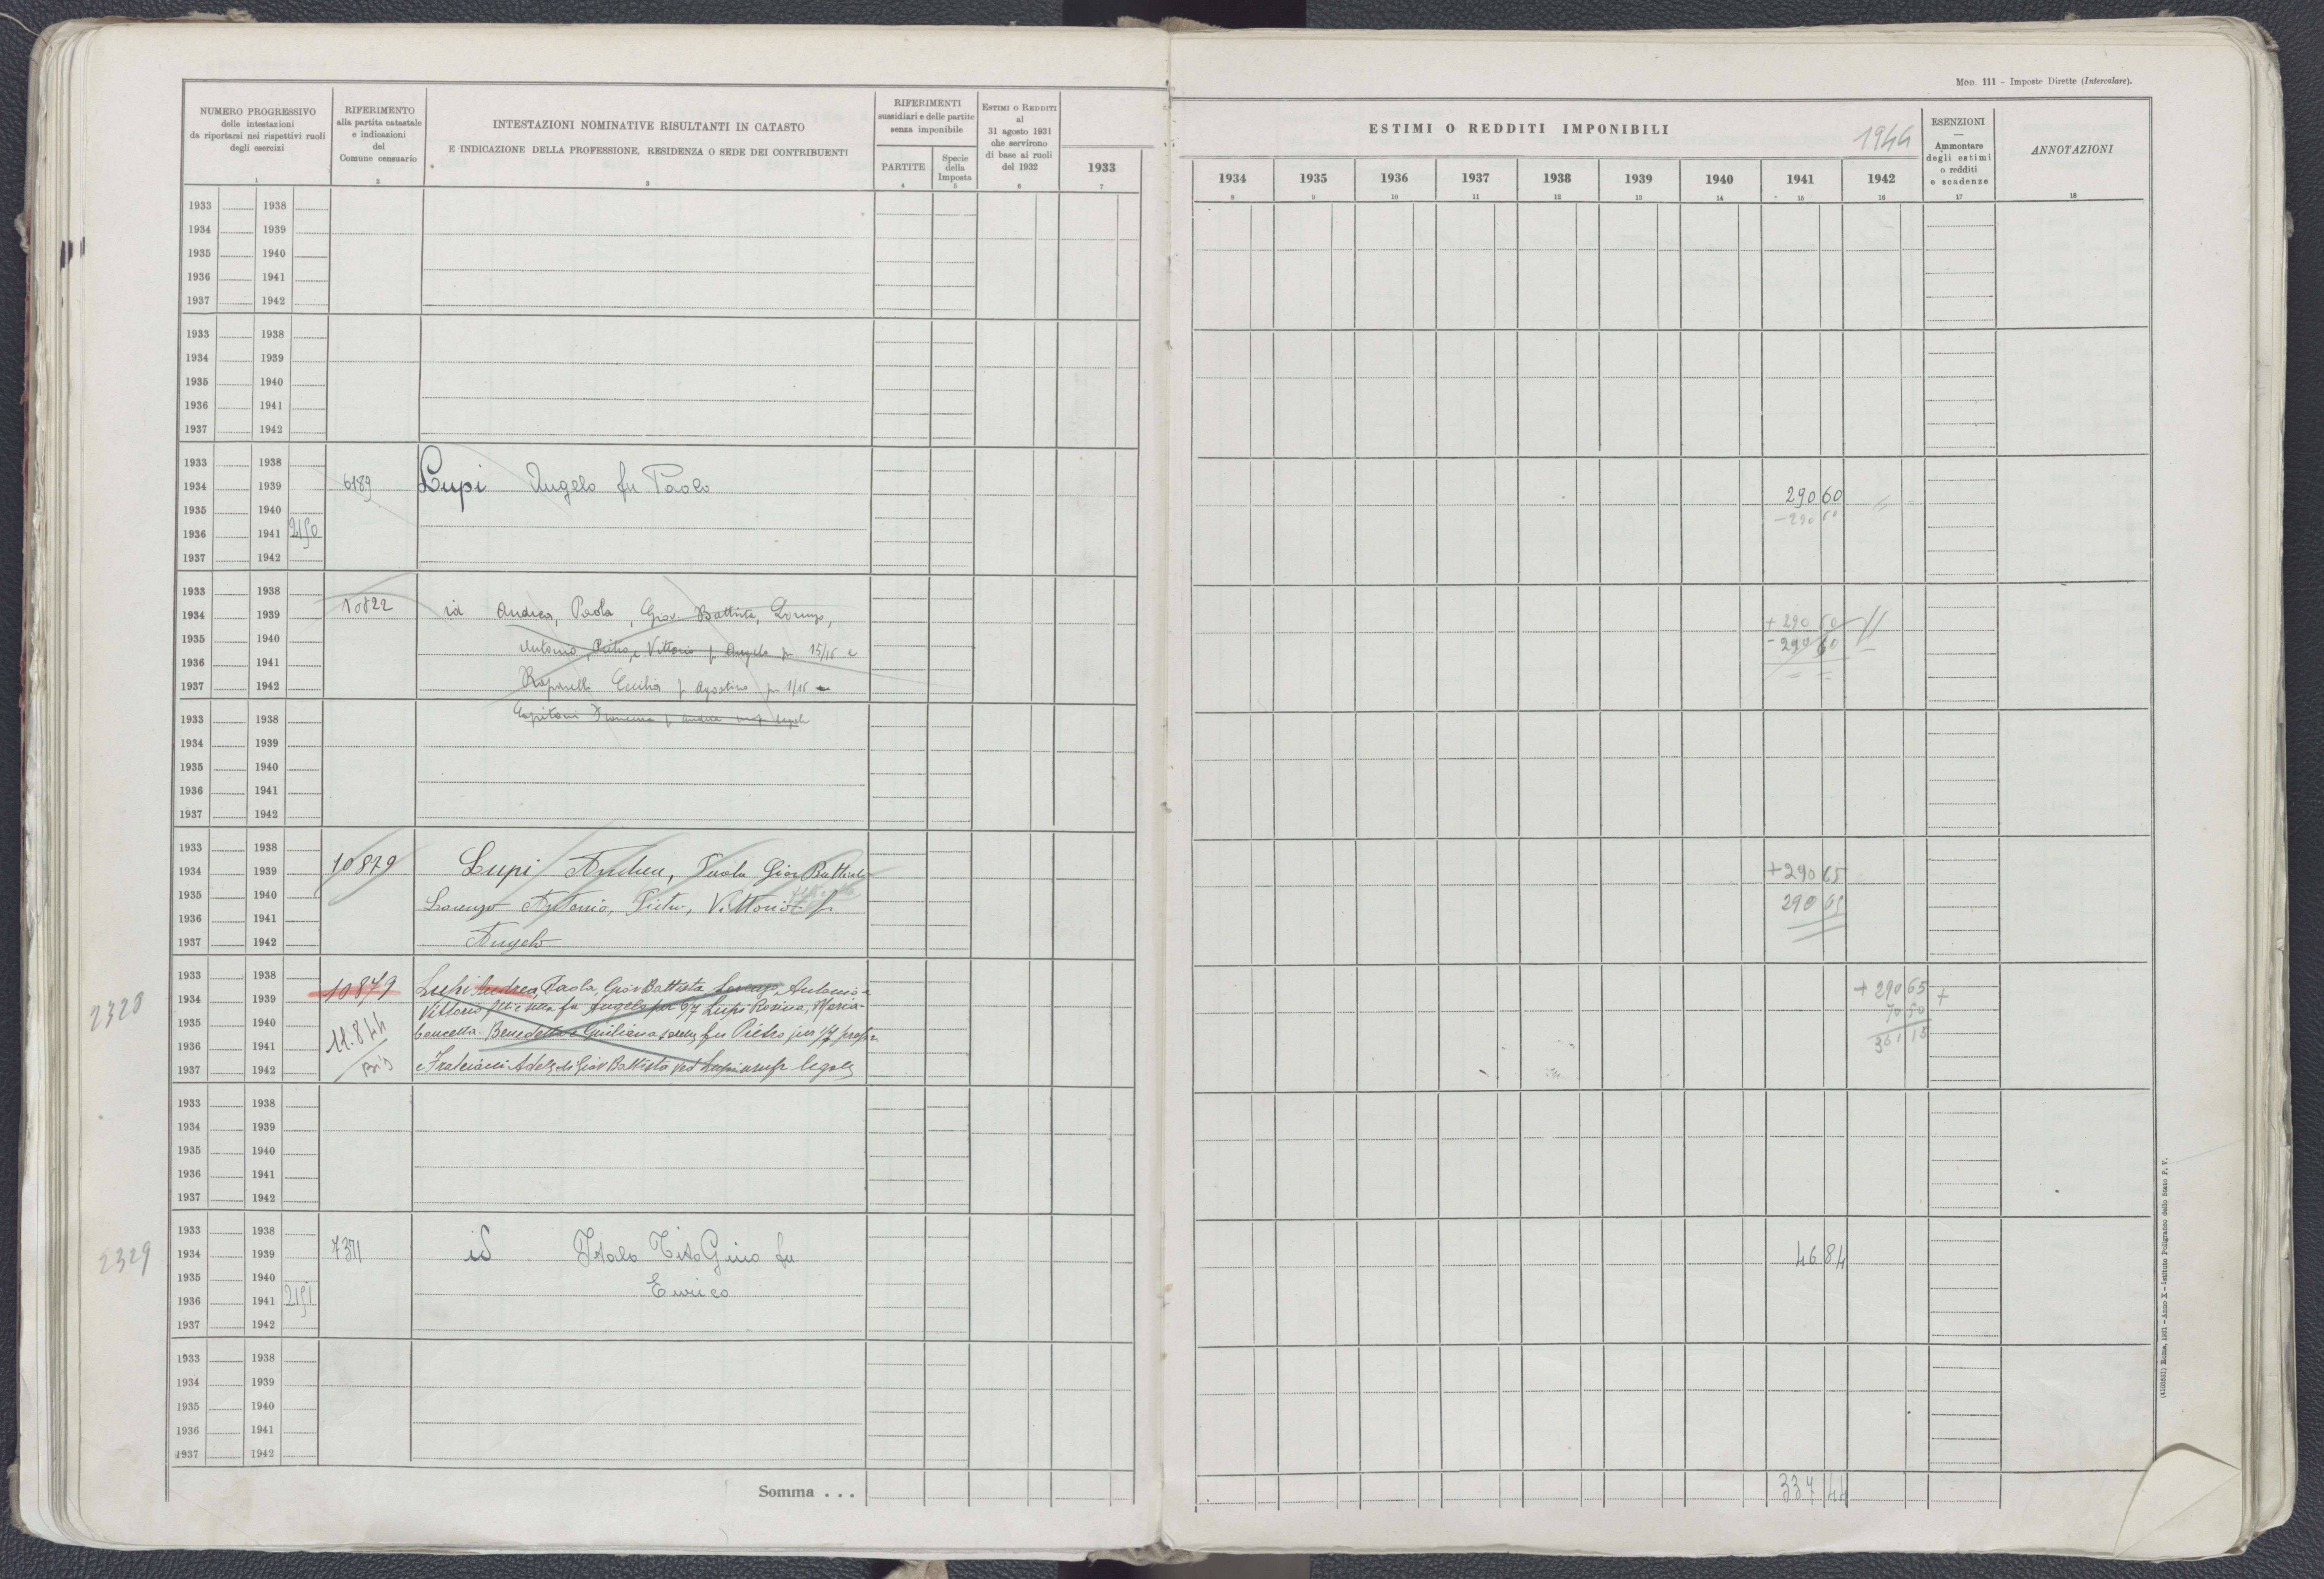 Mod. 111 - Imposte Dirette (Intercalare).
NUMERO PROGRESSIVO
delle intestazioni
da riportarsi nei rispettivi ruoli
degli esercizi
1
RIFERIMENTO
alla partita catastale
e indicazioni
del
Comune censuario
2
INTESTAZIONI NOMINATIVE RISULTANTI IN CATASTO
E INDICAZIONE DELLA PROFESSIONE, RESIDENZA O SEDE DEI CONTRIBUENTI
3
RIFERIMENTI
sussidiari e delle partite
senza imponibile
PARTITE
4
Specie
della
Imposta
5
Estimi o Redditi
al
31 agosto 1931
che servirono
di base ai ruoli
del 1932
6
1933
7
ESTIMI O REDDITI IMPONIBILI
1944
1934 1935 1936 1937 1938 1939 1940 1941 1942
8 9 10 11 12 13 14 15 16
ESENZIONI
—
Ammontare
degli estimi
o redditi
e scadenze
17
ANNOTAZIONI
18
1933 1938
1934 1939
1935 1940
1936 1941
1937 1942
1933 1938
1934 1939
1935 1940
1936 1941
1937 1942
1933 1938
1934 1939 6189 Lupi Angelo fu Paolo 290 60
1935 1940 - 290 60
1936 1941 2150
1937 1942
1933 1938
1934 1939 10822 id Andrea, Paola, Giov. Battista, Lorenzo, + 290 60
1935 1940 Antonio, Pietro, e Vittorio f Angelo per 15/16 e - 290 60
1936 1941
1937 1942 Cecilia f Agostino per 1/16
1933 1938 Capitani Francesca f Andrea
1934 1939
1935 1940
1936 1941
1937 1942
1933 1938
1934 1939 10879 Lupi Andrea, Paola Giov Battista + 290 65
1935 1940 Lorenzo Antonio, Pietro, Vittorio f 290 65
1936 1941
1937 1942 Angelo
1933 1938 10879 Lupi Andrea, Paola, Giov Battista Lorenzo, Antonio e + 290 65 +
2328 1934 1939 Vittorio fu Angelo per 6/7 Lupi Rosina, Maria 70 50
1935 1940 11.844 Concetta Benedetta e Giuliana sorelle fu Pietro per 1/7 propr 361 15
1936 1941 Bis
1937 1942 e Fratciacci Adele di Giov Battista ved Lupi usufr legale
1933 1938
1934 1939
1935 1940
1936 1941
1937 1942
1933 1938
2329 1934 1939 7371 id Italo Tito Gino fu 46 84
1935 1940 Enrico
1936 1941 2151
1937 1942
1933 1938
1934 1939
1935 1940
1936 1941
1937 1942
Somma . . . 337 44
(4103831) Roma, 1931 - Anno X - Istituto Poligrafico dello Stato P. V.